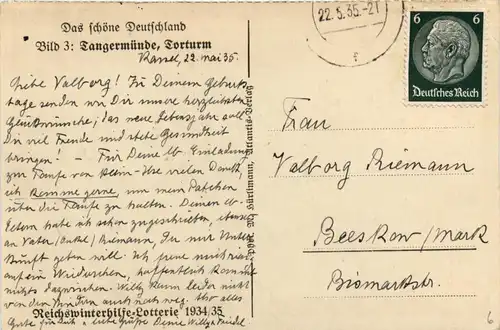 Das schöne Deutschland
Bild 3: Tangermünde, Torturm
Kassel, 22. Mai 35.
Liebe Valborg! Zu Deinem Geburts-
tage senden wir Dir unsere herzlichsten
Glückwünsche; das neue Lebensjahr soll
Dir viel Freude und stete Gesundheit
bringen! – Für Deine lb. Einladung
zur Taufe von Helm-Ilse vielen Dank,
ich komme gerne, um mein Patchen
über die Taufe zu halten. Deinen lb.
Eltern habe ich schon zugeschrieben, ebenso
an Vater Riemann, der nur Unter-
kunft geben will. Ich freue mich riesig
auf ein Wiedersehen, hoffentlich kommt
nichts dazwischen. Willy kann leider nicht
von den auch noch weg. Also alles
Gute für Dich u. liebe Grüße Deine Willy u. Friedel
Reichswinterhilfe-Lotterie 1934/35
Phot. M. Hürlimann, Atlantis-Verlag
22.5.35.-21
6 6
Deutsches Reich
Frau
Valborg Riemann
Beeskow/Mark
Bismarkstr.
6